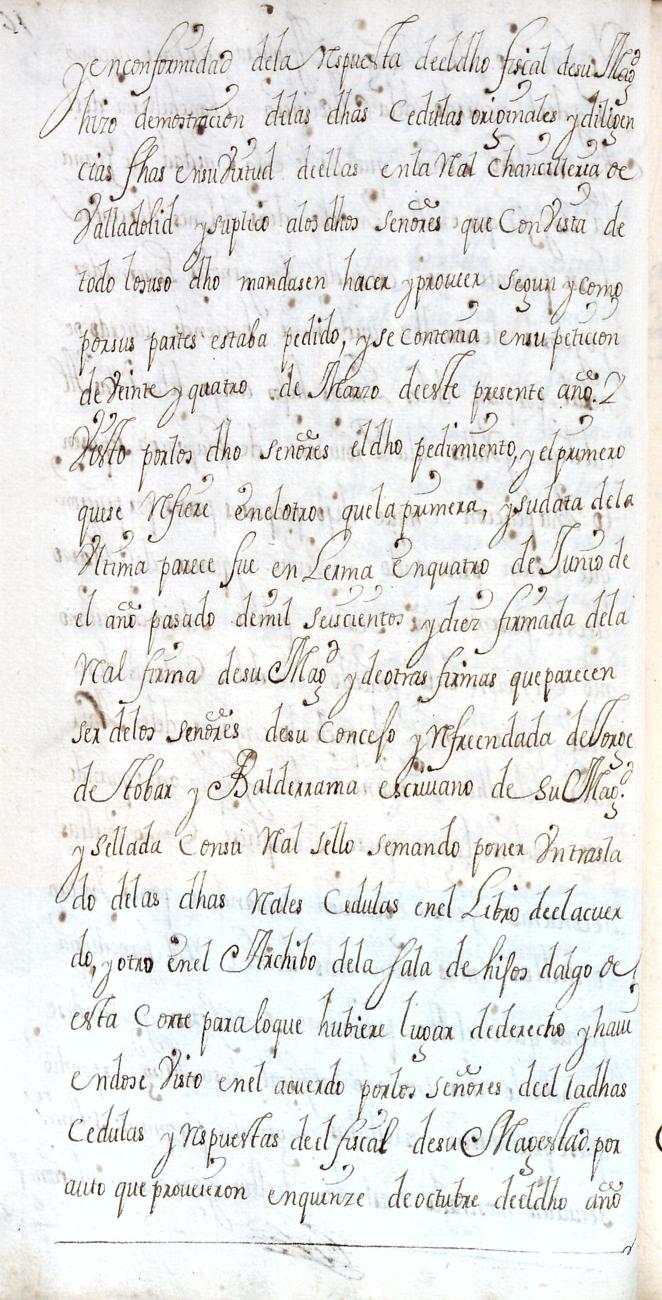 y enconformidad dela Rspuesta deeldho fiscal desu Magd
hizo demostracion delas dhas Cedulas originales y diligen
cias fhas ensuVirtud deellas enla Ral Chancilleria de
Valladolid ysuplico alosdhos señores que ConVista de
todo losuso dho mandasen hacer yproveer segun y como
porsus partes estaba pedido, y se contenia ensu peticion
de Veinte y quatro de Marzo deeste presente año. 2
Visto porlos dho señores eldho pedimiento, y elprimero
quese Rfiere enelotro quela primera, ysudata dela
Ultima parece fue en Lerma enquatro de Junio de
el año pasado demil seiscientos ydiez firmada dela
Ral firma desu Magd y deotras firmas queparecen
ser delos señores desu Concejo y Rfreendada deJorge
de Tobar y Balderrama escrivano de su Magd
y sellada Consu Ral sello semando poner Vntrasla
do delas dhas Rales Cedulas enel Libro deelacuer
do, y otro enel Archibo dela sala de hijos dalgo de
esta Corte paraloque hubiere lugar dederecho y havi
endose Visto enel acuerdo porlos señores deel ladhas
Cedulas y Rspuestas deel fiscal desu Magestad. por
auto queproveieron enquinze deoctubre deeldho año